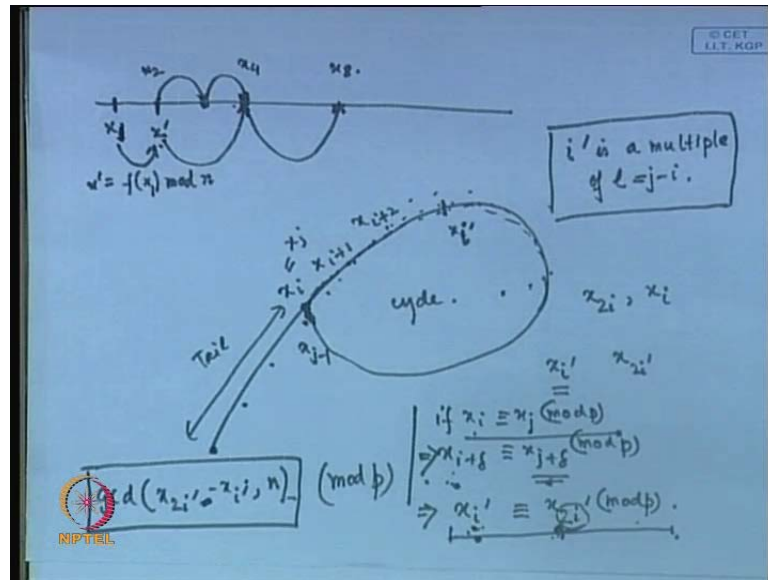 © CET
I.I.T. KGP
x2 x4 x8.
x1 x'
x' = f(x1) mod n
i' is a multiple
of l = j-i.
xj
xi xi+1 xi+2 xi'
cycle.
xj-1
Tail
x2i, xi
xi' x2i'
if xi ≡ xj (mod p)
⇒ xi+δ ≡ xj+δ (mod p)
⇒ xi' ≡ x2i' (mod p).
gcd(x2i' - xi', n) (mod p)
NPTEL